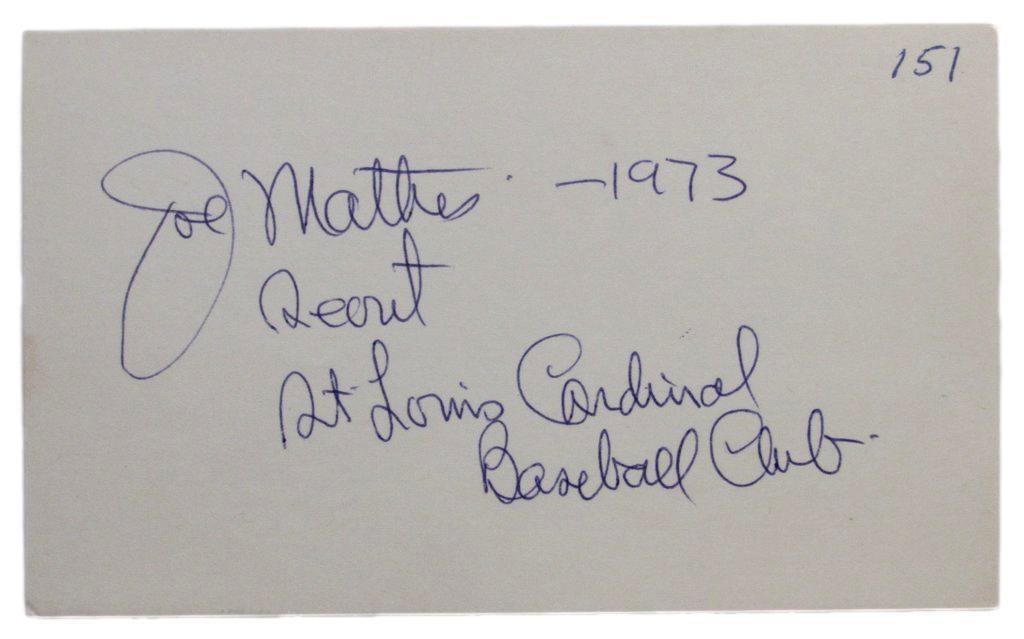 151
Joe Mathes - 1973
Scout
St. Louis Cardinal
Baseball Club.